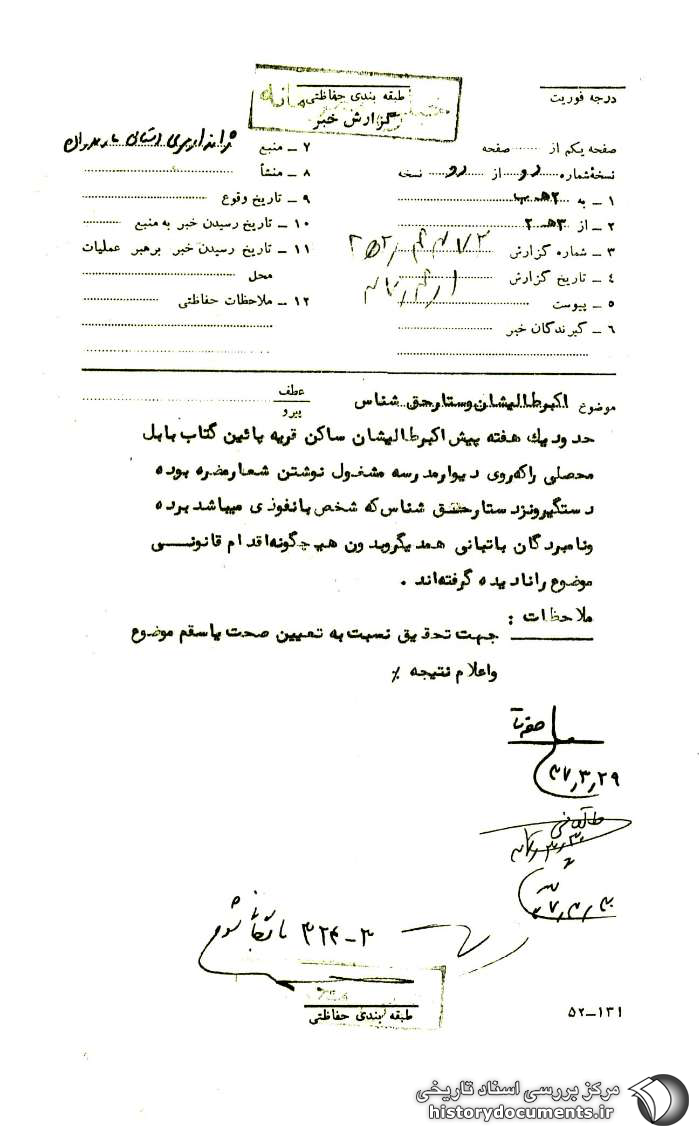 درجه فوریت
طبقه بندی حفاظتی
گزارش خبر
صفحه یکم از ............ صفحه
نسخه شماره دو از دو نسخه
۱ ــ به ۲هـ ب
۲ ــ از ۳هـ ۲
۳ ــ شماره گزارش
۴ ــ تاریخ گزارش
۵ ــ پیوست
۶ ــ گیرندگان خبر
۷ ــ منبع
۸ ــ منشأ
۹ ــ تاریخ وقوع
۱۰ ــ تاریخ رسیدن خبر به منبع
۱۱ ــ تاریخ رسیدن خبر برهبر عملیات
محل
۱۲ ــ ملاحظات حفاظتی
موضوع اکبرطالیشان وستارحق شناس
عطف
پیرو
حدود یك هفته پیش اکبرطالیشان ساکن قریه پائین گتاب بابل
محصلی راکه روی دیوارمدرسه مشغول نوشتن شعارمضره بوده
دستگیرونزد ستارحق شناس که شخص بانفوذی میباشد برده
ونامبردگان باتبانی همدیگروبدون هیچگونه اقدام قانونــی
موضوع رانادیده گرفته‌اند .
ملاحظات :
جهت تحقیق نسبت به تعیین صحت یاسقم موضوع
واعلام نتیجه ٪
۴۷٫۳٫۲۹
طبقه بندی حفاظتی
۵۲ــ۱۳۱
مرکز بررسی اسناد تاریخی
historydocuments.ir